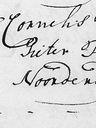 Cornelis
Pieter
Noorden